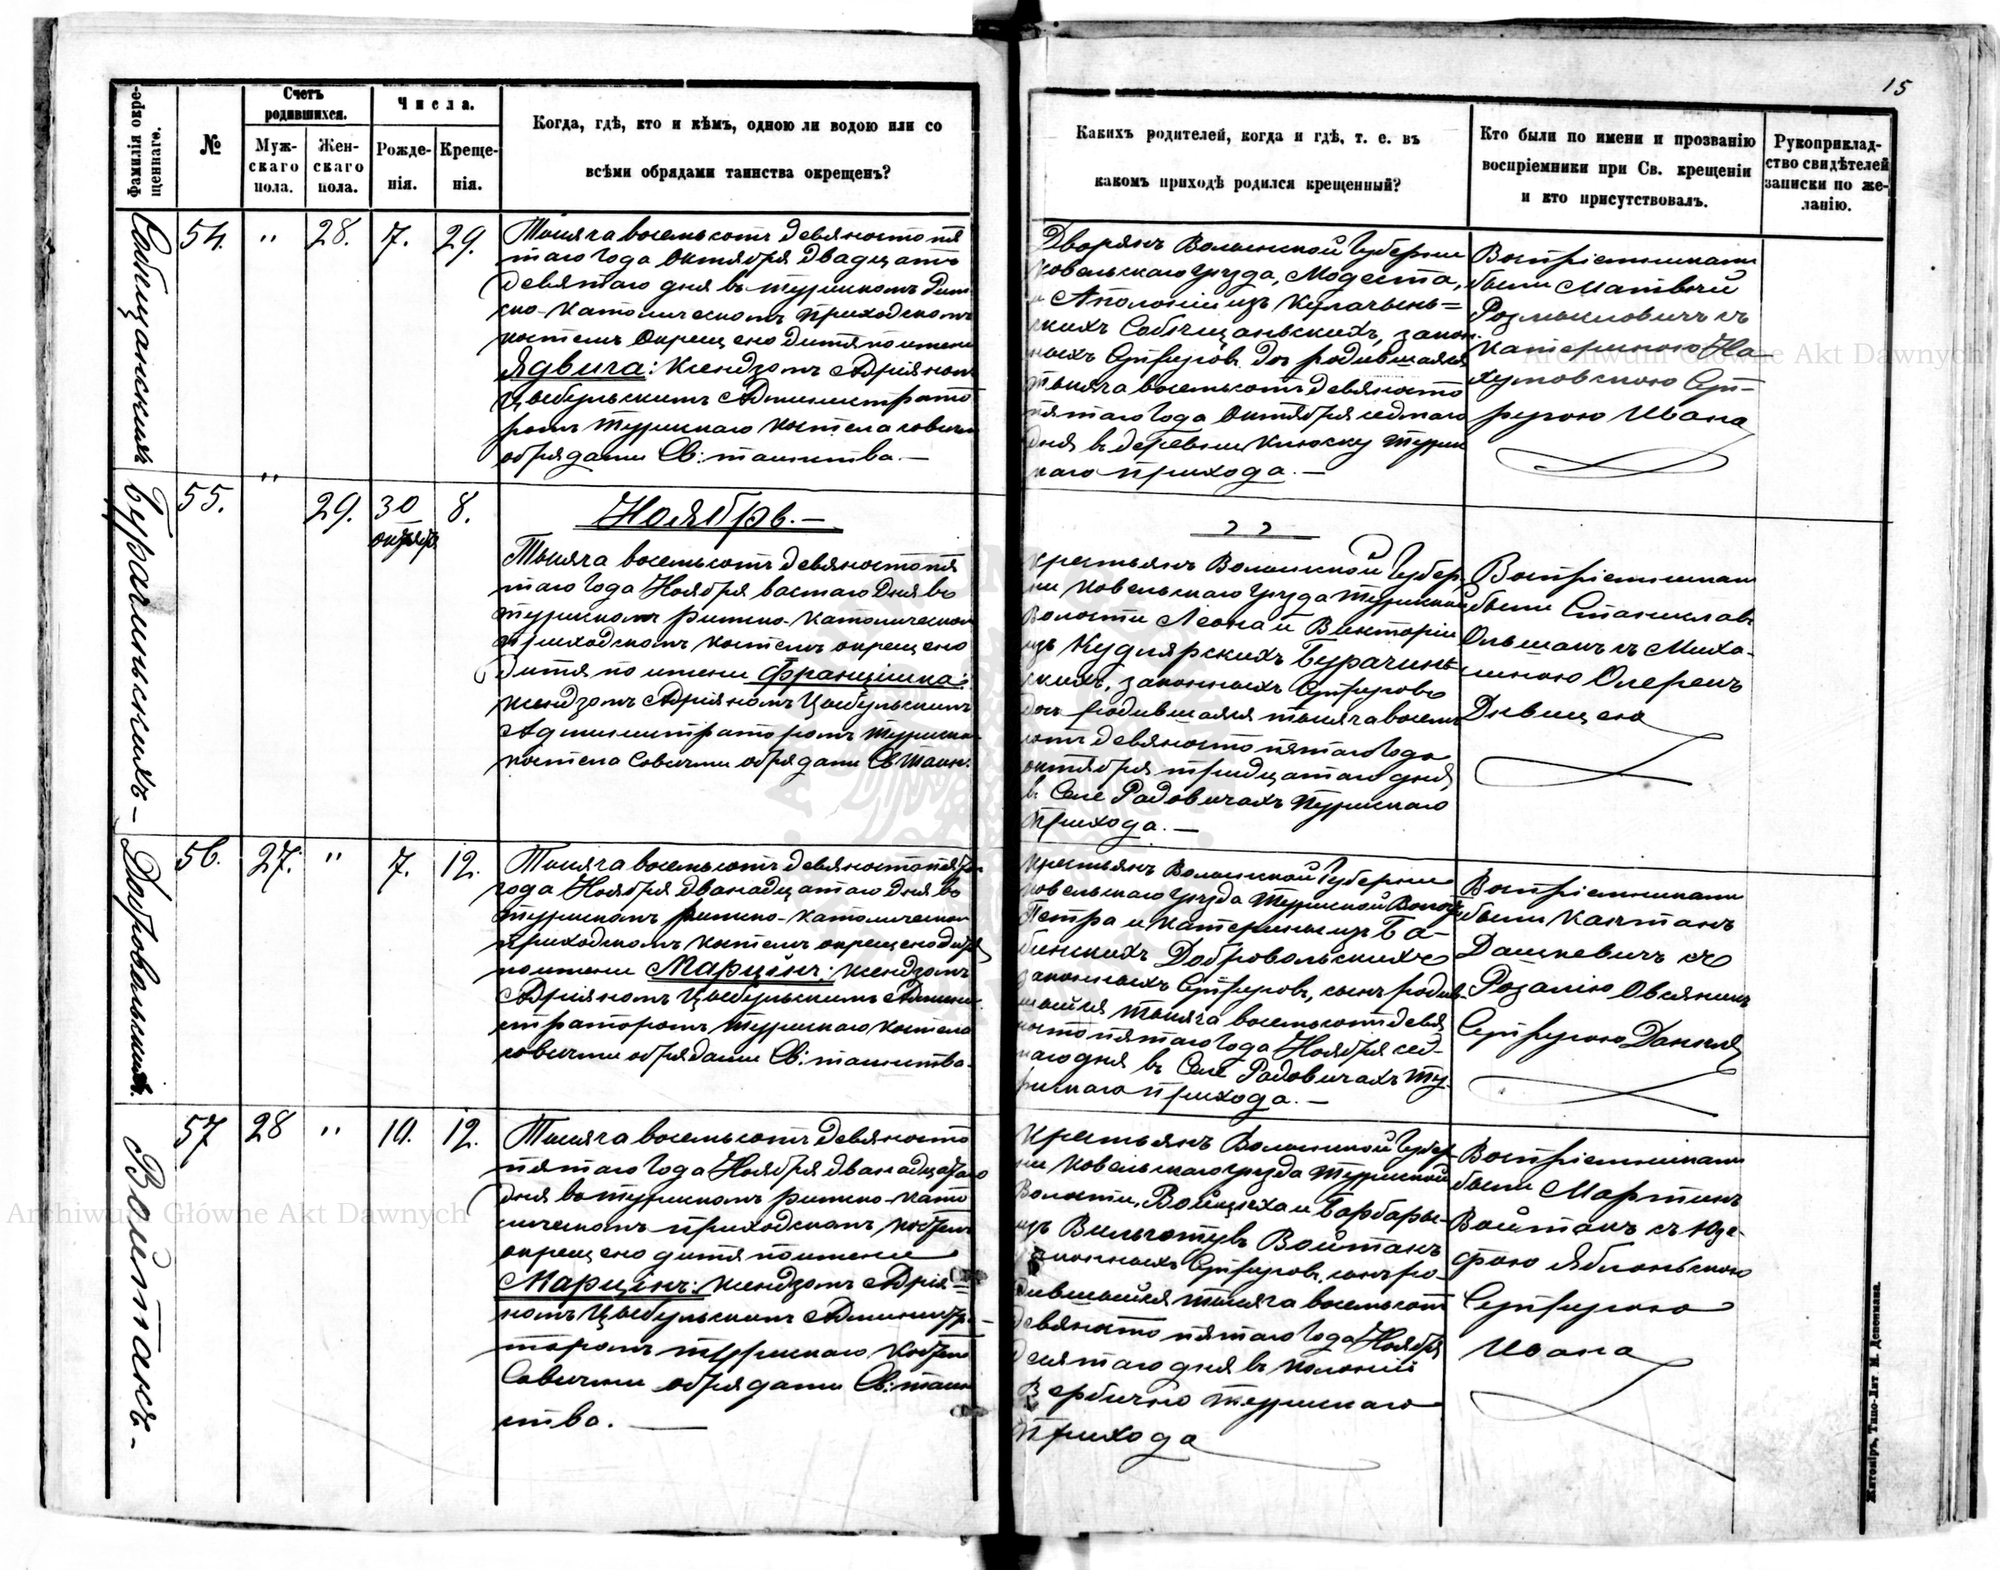 15
Фамилія окре-
щеннаго.
№
Счетъ
родившихся.
Муж-
скаго
пола.
Жен-
скаго
пола.
Числа.
Рожде-
нія.
Креще-
нія.
Когда, гдѣ, кто и кѣмъ, одною ли водою или со
всѣми обрядами таинства окрещенъ?
Какихъ родителей, когда и гдѣ, т. е. въ
какомъ приходѣ родился крещенный?
Кто были по имени и прозванію
воспріемники при Св. крещеніи
и кто присутствовалъ.
Рукоприклад-
ство свидѣтелей
записки по же-
ланію.
54. " 28. 7. 29.
Тысяча восемьсотъ девяносто пя
таго года Октября двадцать
девятаго дня въ Турискомъ Рим
ско-Католическомъ приходскомъ
костелѣ окрещено дитя по имени
Ядвига: Ксендзомъ Адріяномъ
Цыбульскимъ Администрато
ромъ Турискаго Костела совсѣми
обрядами Св: таинства. —
Дворянъ Волынской Губерніи
Ковельскаго уѣзда, Модеста,
и Аполоніи изъ
скихъ закон
ныхъ Супруговъ дочь родившаяся
тысяча восемьсотъ девяносто
пятаго года Октября седмаго
дня въ деревни Турис
каго прихода. —
Воспріемниками
были Матвѣй
съ
Катериною
Суп-
ругою Ивана
55. " 29. 30 октября 8.
Ноябрь. —
Тысяча восемьсотъ девяносто пя
таго года Ноября восмаго дня въ
Турискомъ Римско-Католическом
приходскомъ костелѣ окрещено
дитя по имени Францішка:
Ксендзомъ Адріяномъ Цыбульскимъ
Администраторомъ Туриска
костела совсѣми обрядами Св таин.
Крестьянъ Волынской Губер
ни Ковельскаго уѣзда Туриской
Волости Леона и Викторіи
изъ Кудлярскихъ Бурачинь
скихъ, законныхъ Супруговъ
дочь родившаяся тысяча восем
сотъ девяносто пятаго года
октября тридцатаго дня
въ Селѣ Радовичахъ Турискаго
прихода. —
Воспріемниками
были Станиславъ
Ольшакъ съ Миха-
линою
Дивицею
56. 27. " 7. 12.
Тысяча восемьсотъ девяносто пята
года Ноября дванадцатаго дня во
Турискомъ Римско-Католическом
приходскомъ костелѣ окрещено дитя
по имени Марцінъ: Ксендзомъ
Адріяномъ Цыбульскимъ Админи
страторомъ Турискаго Костела
совсѣми обрядами Св: таинства.
Крестьянъ Волынской Губерніи
Ковельскаго уѣзда Туриской Волос
Петра и Катерины изъ Ба-
бинскихъ Добровольскихъ
законныхъ Супруговъ, сынъ родив
шайся тысяча восемьсотъ девя
носто пятаго года Ноября сед-
маго дня въ Селѣ Радовичахъ Ту-
рискаго прихода. —
Воспріемниками
были Каетанъ
Дашкевичъ съ
Розаліею Овсяникъ
Супругою Данила
57 28 " 10. 12.
Тысяча восемьсотъ девяносто
пятаго года Ноября дванадцатаго
дня во Турискомъ Римско-Като
лическомъ приходскомъ костелѣ
окрещено дитя по имени
Марцінъ: Ксендзомъ Адрія-
номъ Цыбульскимъ Администра-
торомъ Турискаго Костела
Совсѣми обрядами Св: таин
ства. —
Крестьянъ Волынской Губер
ни Ковельскаго уѣзда Туриской
Волости, Войцѣха и Барбары
изъ Войтакъ
законныхъ Супруговъ, сынъ ро-
дившайся тысяча восемьсотъ
девяносто пятаго года Ноября
десятаго дня въ колоніи
Вербично Турискаго
Прихода
Воспріемниками
были Мартинъ
Войтакъ съ Юзе-
фою Яблоньскою
Супругою
Ивана
Добровольскихъ.
Бурачиньскихъ. —
Войтакъ. —
Archiwum Główne Akt Dawnych
Archiwum Główne Akt Dawnych
Житоміръ, Типо-Лит. М. Дененмана.